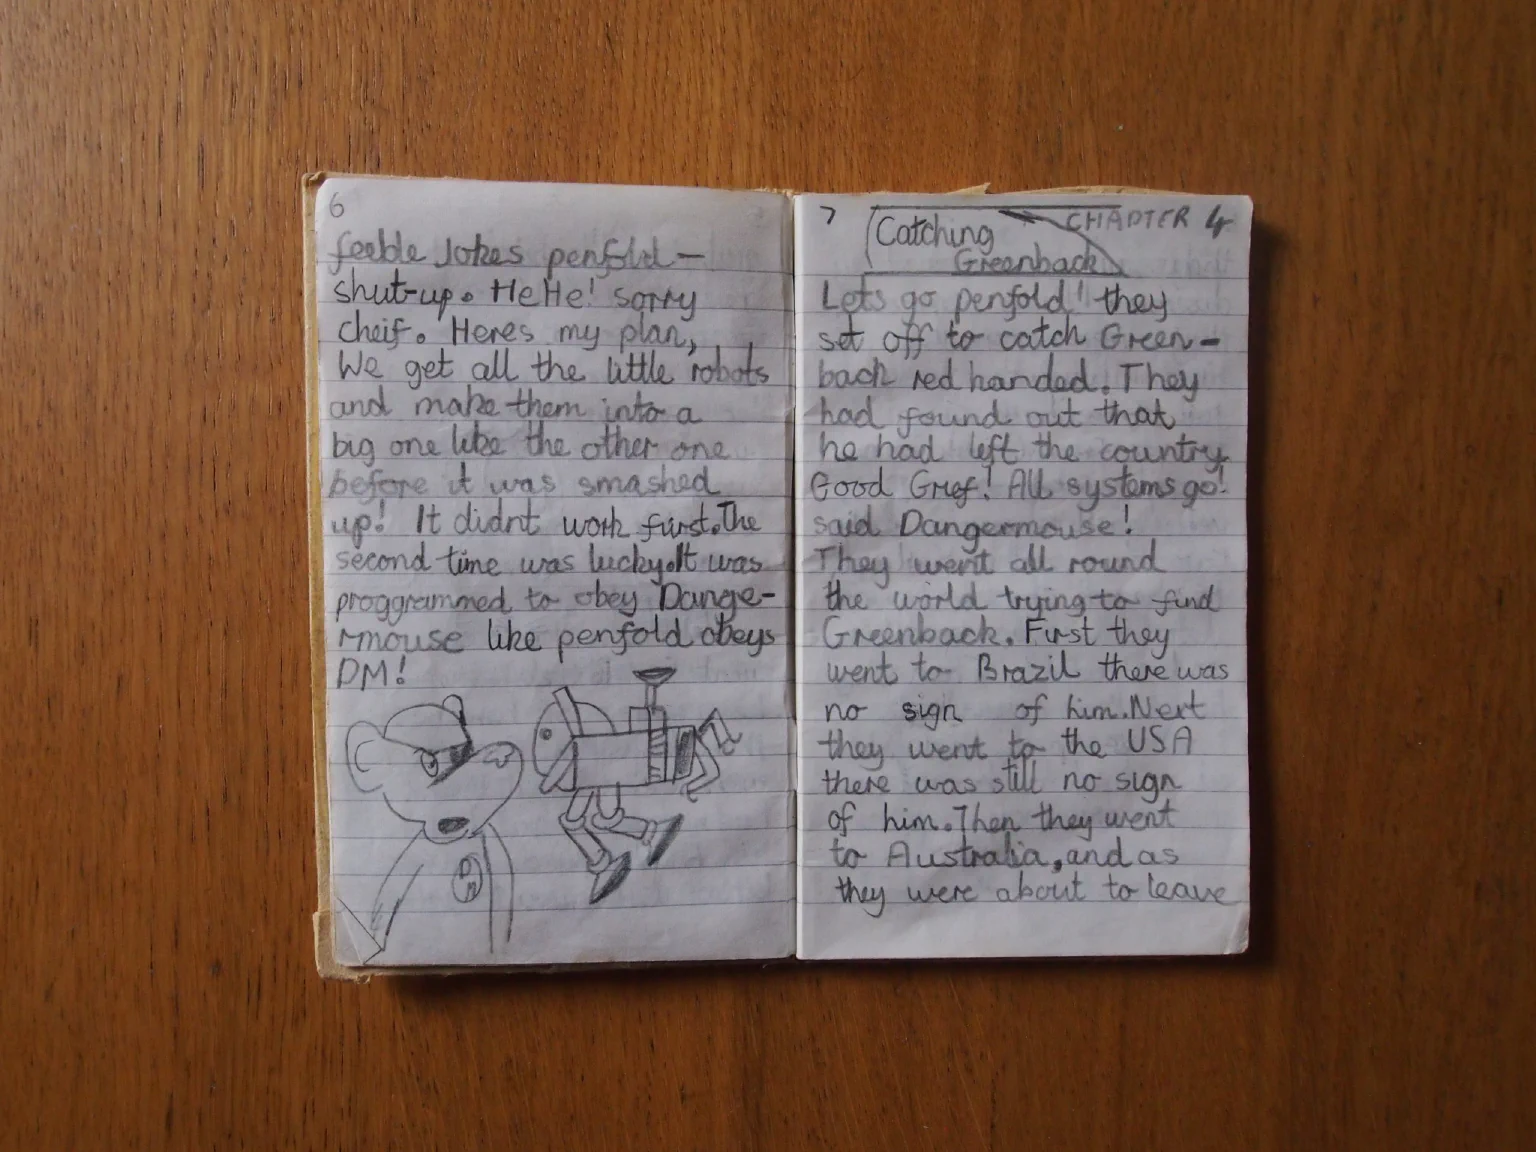 6
feeble Jokes penfold—
shut-up. HeHe! sorry
cheif. Heres my plan,
We get all the little robots
and make them into a
big one like the other one
before it was smashed
up! It didnt work first.The
second time was lucky.It was
proggrammed to obey Dange-
rmouse like penfold obeys
DM!
7
CHAPTER 4
Catching
Greenback
Lets go penfold! they
set off to catch Green-
back red handed. They
had found out that
he had left the country.
Good Grief! All systems go!
said Dangermouse!
They went all round
the world trying to find
Greenback. First they
went to Brazil there was
no sign of him. Next
they went to the USA
there was still no sign
of him. Then they went
to Australia, and as
they were about to leave